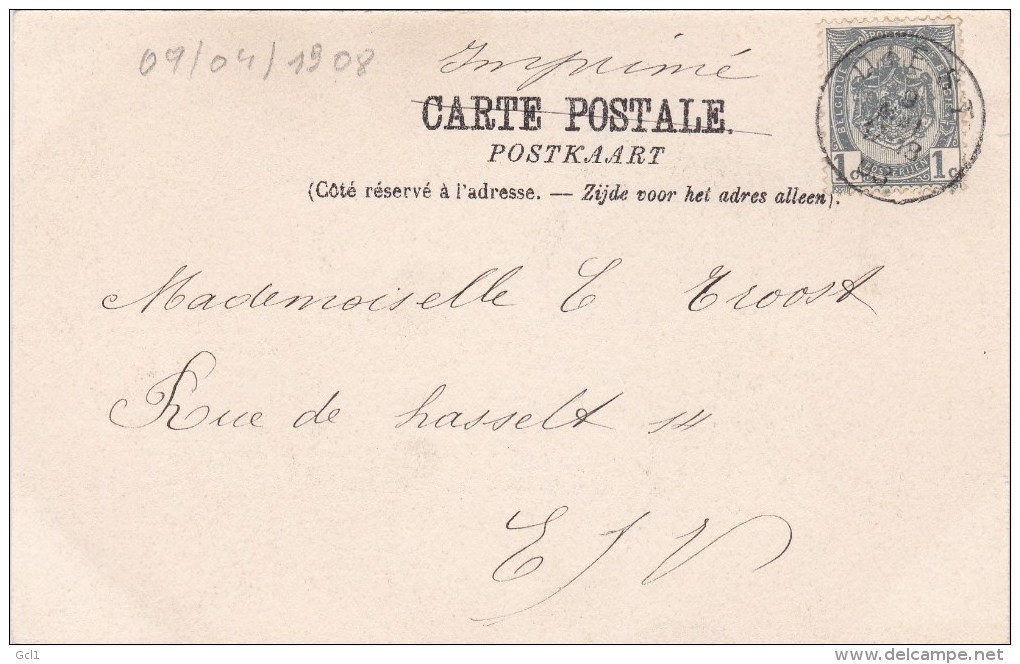 09/04/1908
Imprimé
CARTE POSTALE.
POSTKAART
(Côté réservé à l'adresse. — Zijde voor het adres alleen).
BELGIQUE POSTES BELGIE
1c 1c
Mademoiselle E Troost
Rue de hasselt 14
E/V
Gcl1
delcampe.net